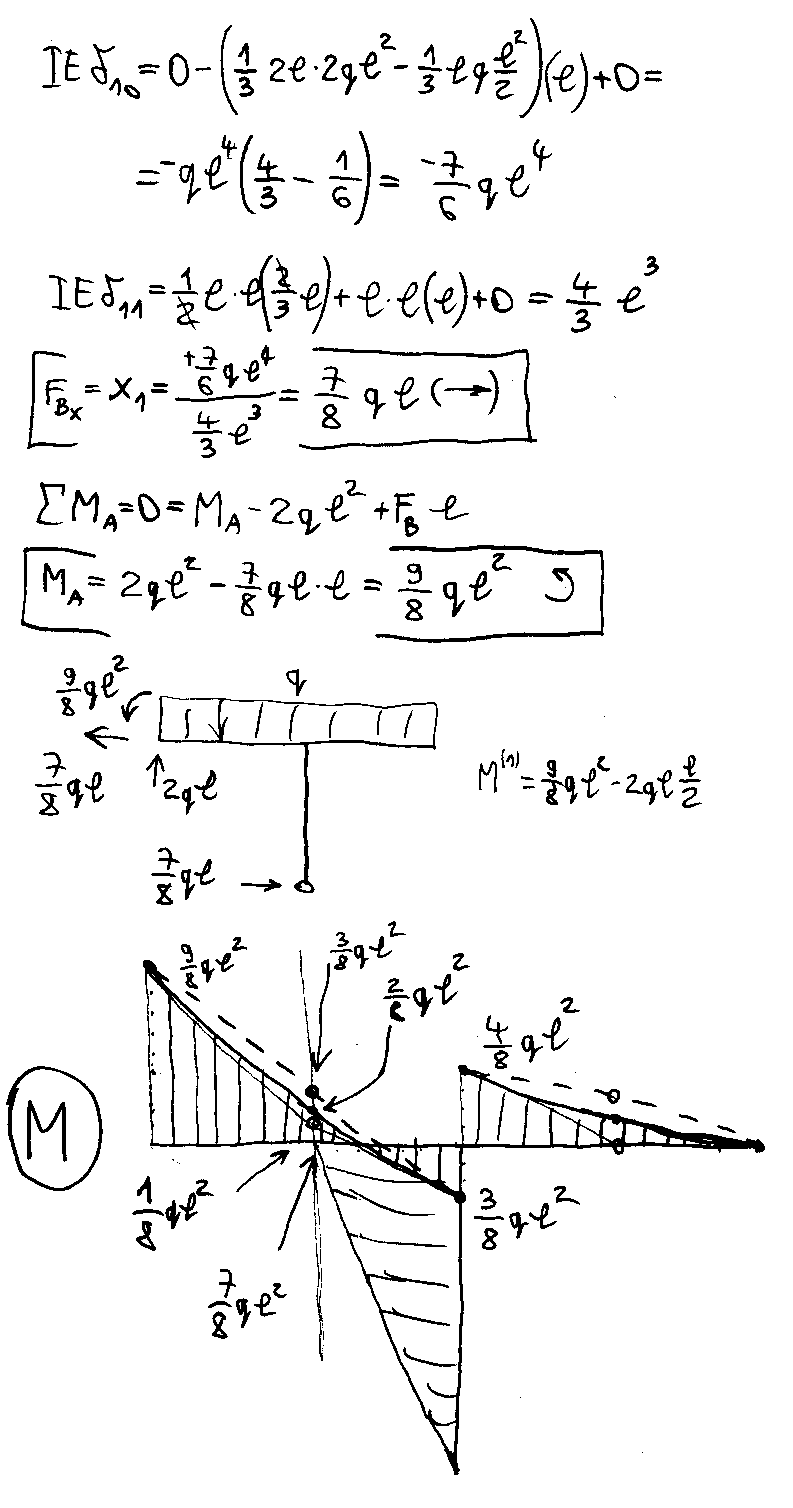 IEδ₁₀ = 0 - (1/3 2ℓ·2qℓ² - 1/3 ℓq ℓ²/2)(ℓ) + 0 =
= -qℓ⁴(4/3 - 1/6) = -7/6 qℓ⁴
IEδ₁₁ = 1/2 ℓ·ℓ(2/3 ℓ) + ℓ·ℓ(ℓ) + 0 = 4/3 ℓ³
F_Bx = X₁ = (+7/6 qℓ⁴)/(4/3 ℓ³) = 7/8 qℓ (→)
ΣM_A = 0 = M_A - 2qℓ² + F_B·ℓ
M_A = 2qℓ² - 7/8 qℓ·ℓ = 9/8 qℓ² ↺
9/8 qℓ²
q
7/8 qℓ
↑2qℓ
M⁽¹⁾ = 9/8 qℓ² - 2qℓ ℓ/2
7/8 qℓ →
9/8 qℓ²
3/8 qℓ²
2/8 qℓ²
4/8 qℓ²
M
1/8 qℓ²
3/8 qℓ²
7/8 qℓ²